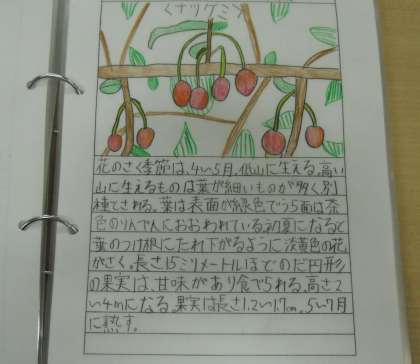 (ナツグミ)
花のさく季節は、4〜5月。低山に生える。高い
山に生えるものは葉が細いものが多く別
種とされる。葉は表面が緑色でうら面は茶
色のりんぺんにおおわれている初夏になると
葉のつけ根にたれ下がるように淡黄色の花
がさく。長さ15ミリメートルほどのだ円形
の果実は、甘味があり食べられる。高さ2
〜4mになる。果実は長さ1.2〜1.7cm。5〜7月
に熟す。